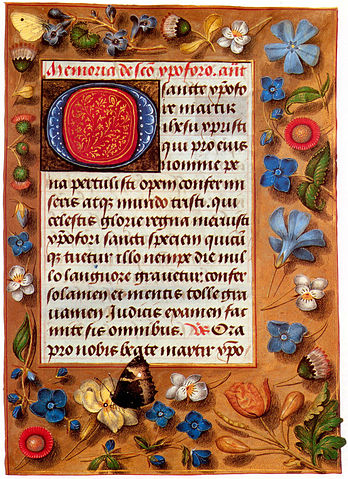 Memoria de sco xpoforo. ant
Sancte xpofo
re martir
ihesu xpristi
qui pro eius
nomine pe
na pertulisti opem confer mi
seris atq; mundo tristi. qui
celestis glorie regna meruisti
xpofori sancti speciem quicū
q; tuetur illo nempe die nul
lo languore gravetur confer
solamen et mentis tolle gra
uamen Iudicis examen fac
mite sis omnibus. Vs Ora
pro nobis beate martir xpo